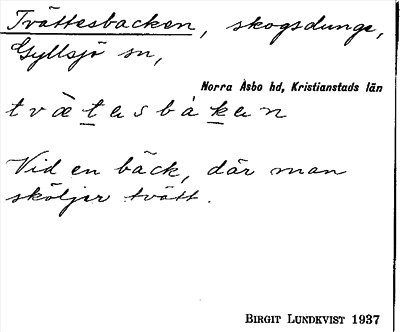 Tvättesbacken, skogsdunge,
Gyllsjö sn,
Norra Åsbo hd, Kristianstads län
t v æ̀ t e s b á k e n
Vid en bäck, där man
sköljer tvätt.
BIRGIT LUNDKVIST 1937